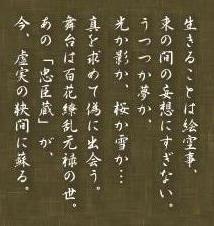 生きることは絵空事、
束の間の妄想にすぎない。
うつつか夢か、
光か影か、桜か雪か…
真を求めて偽に出会う。
舞台は百花繚乱元禄の世。
あの「忠臣蔵」が、
今、虚実の狭間に蘇る。